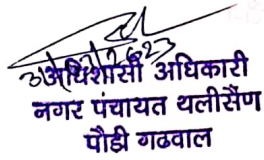 अधिशासी अधिकारी
नगर पंचायत थलीसैण
पौडी गढवाल